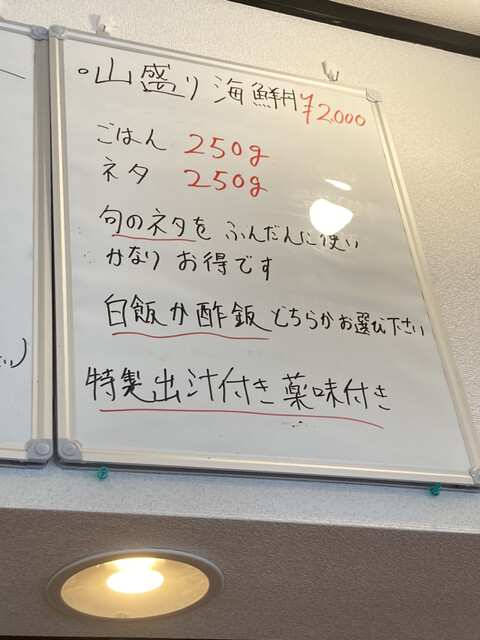 ○山盛り海鮮丼 ¥2,000
ごはん 250g
ネタ 250g
旬のネタを ふんだんに使い
かなり お得です
白飯か酢飯 どちらかお選び下さい
特製出汁付き 薬味付き